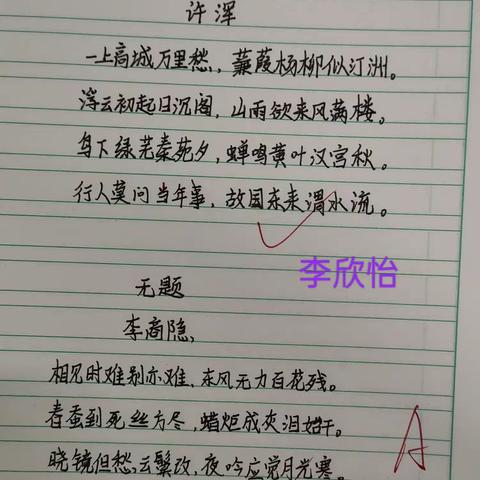 许浑
一上高城万里愁，蒹葭杨柳似汀洲。
溪云初起日沉阁，山雨欲来风满楼。
鸟下绿芜秦苑夕，蝉鸣黄叶汉宫秋。
行人莫问当年事，故国东来渭水流。
李欣怡
无题
李商隐
相见时难别亦难，东风无力百花残。
春蚕到死丝方尽，蜡炬成灰泪始干。
晓镜但愁云鬓改，夜吟应觉月光寒。
A